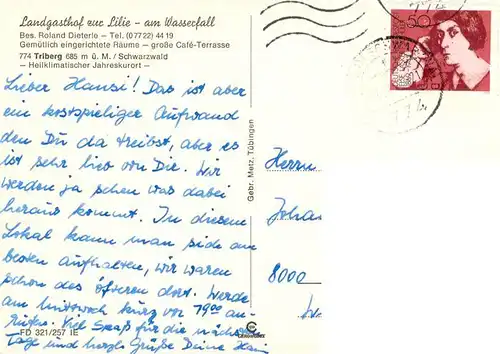 Landgasthof zur Lilie - am Wasserfall
Bes. Roland Dieterle – Tel. (07722) 4419
Gemütlich eingerichtete Räume – große Café-Terrasse
774 Triberg 685 m ü. M. / Schwarzwald
– Heilklimatischer Jahreskurort –
Lieber Hansi! Das ist aber
ein kostspieliger Aufwand
den Du da treibst, aber es
ist sehr lieb von Dir. Wir
werden ja sehen was dabei
heraus kommt. In diesem
Lokal kann man sich am
besten aufhalten, wir waren
schon des öfteren dort. Werde
am Mittwoch kurz vor 19⁰⁰ an-
rufen. Viel Spaß für die nächsten
Tage und herzl. Grüße Deine
FD 321/257 IE
Gebr. Metz, Tübingen
50
774
Herrn
Joha
8000